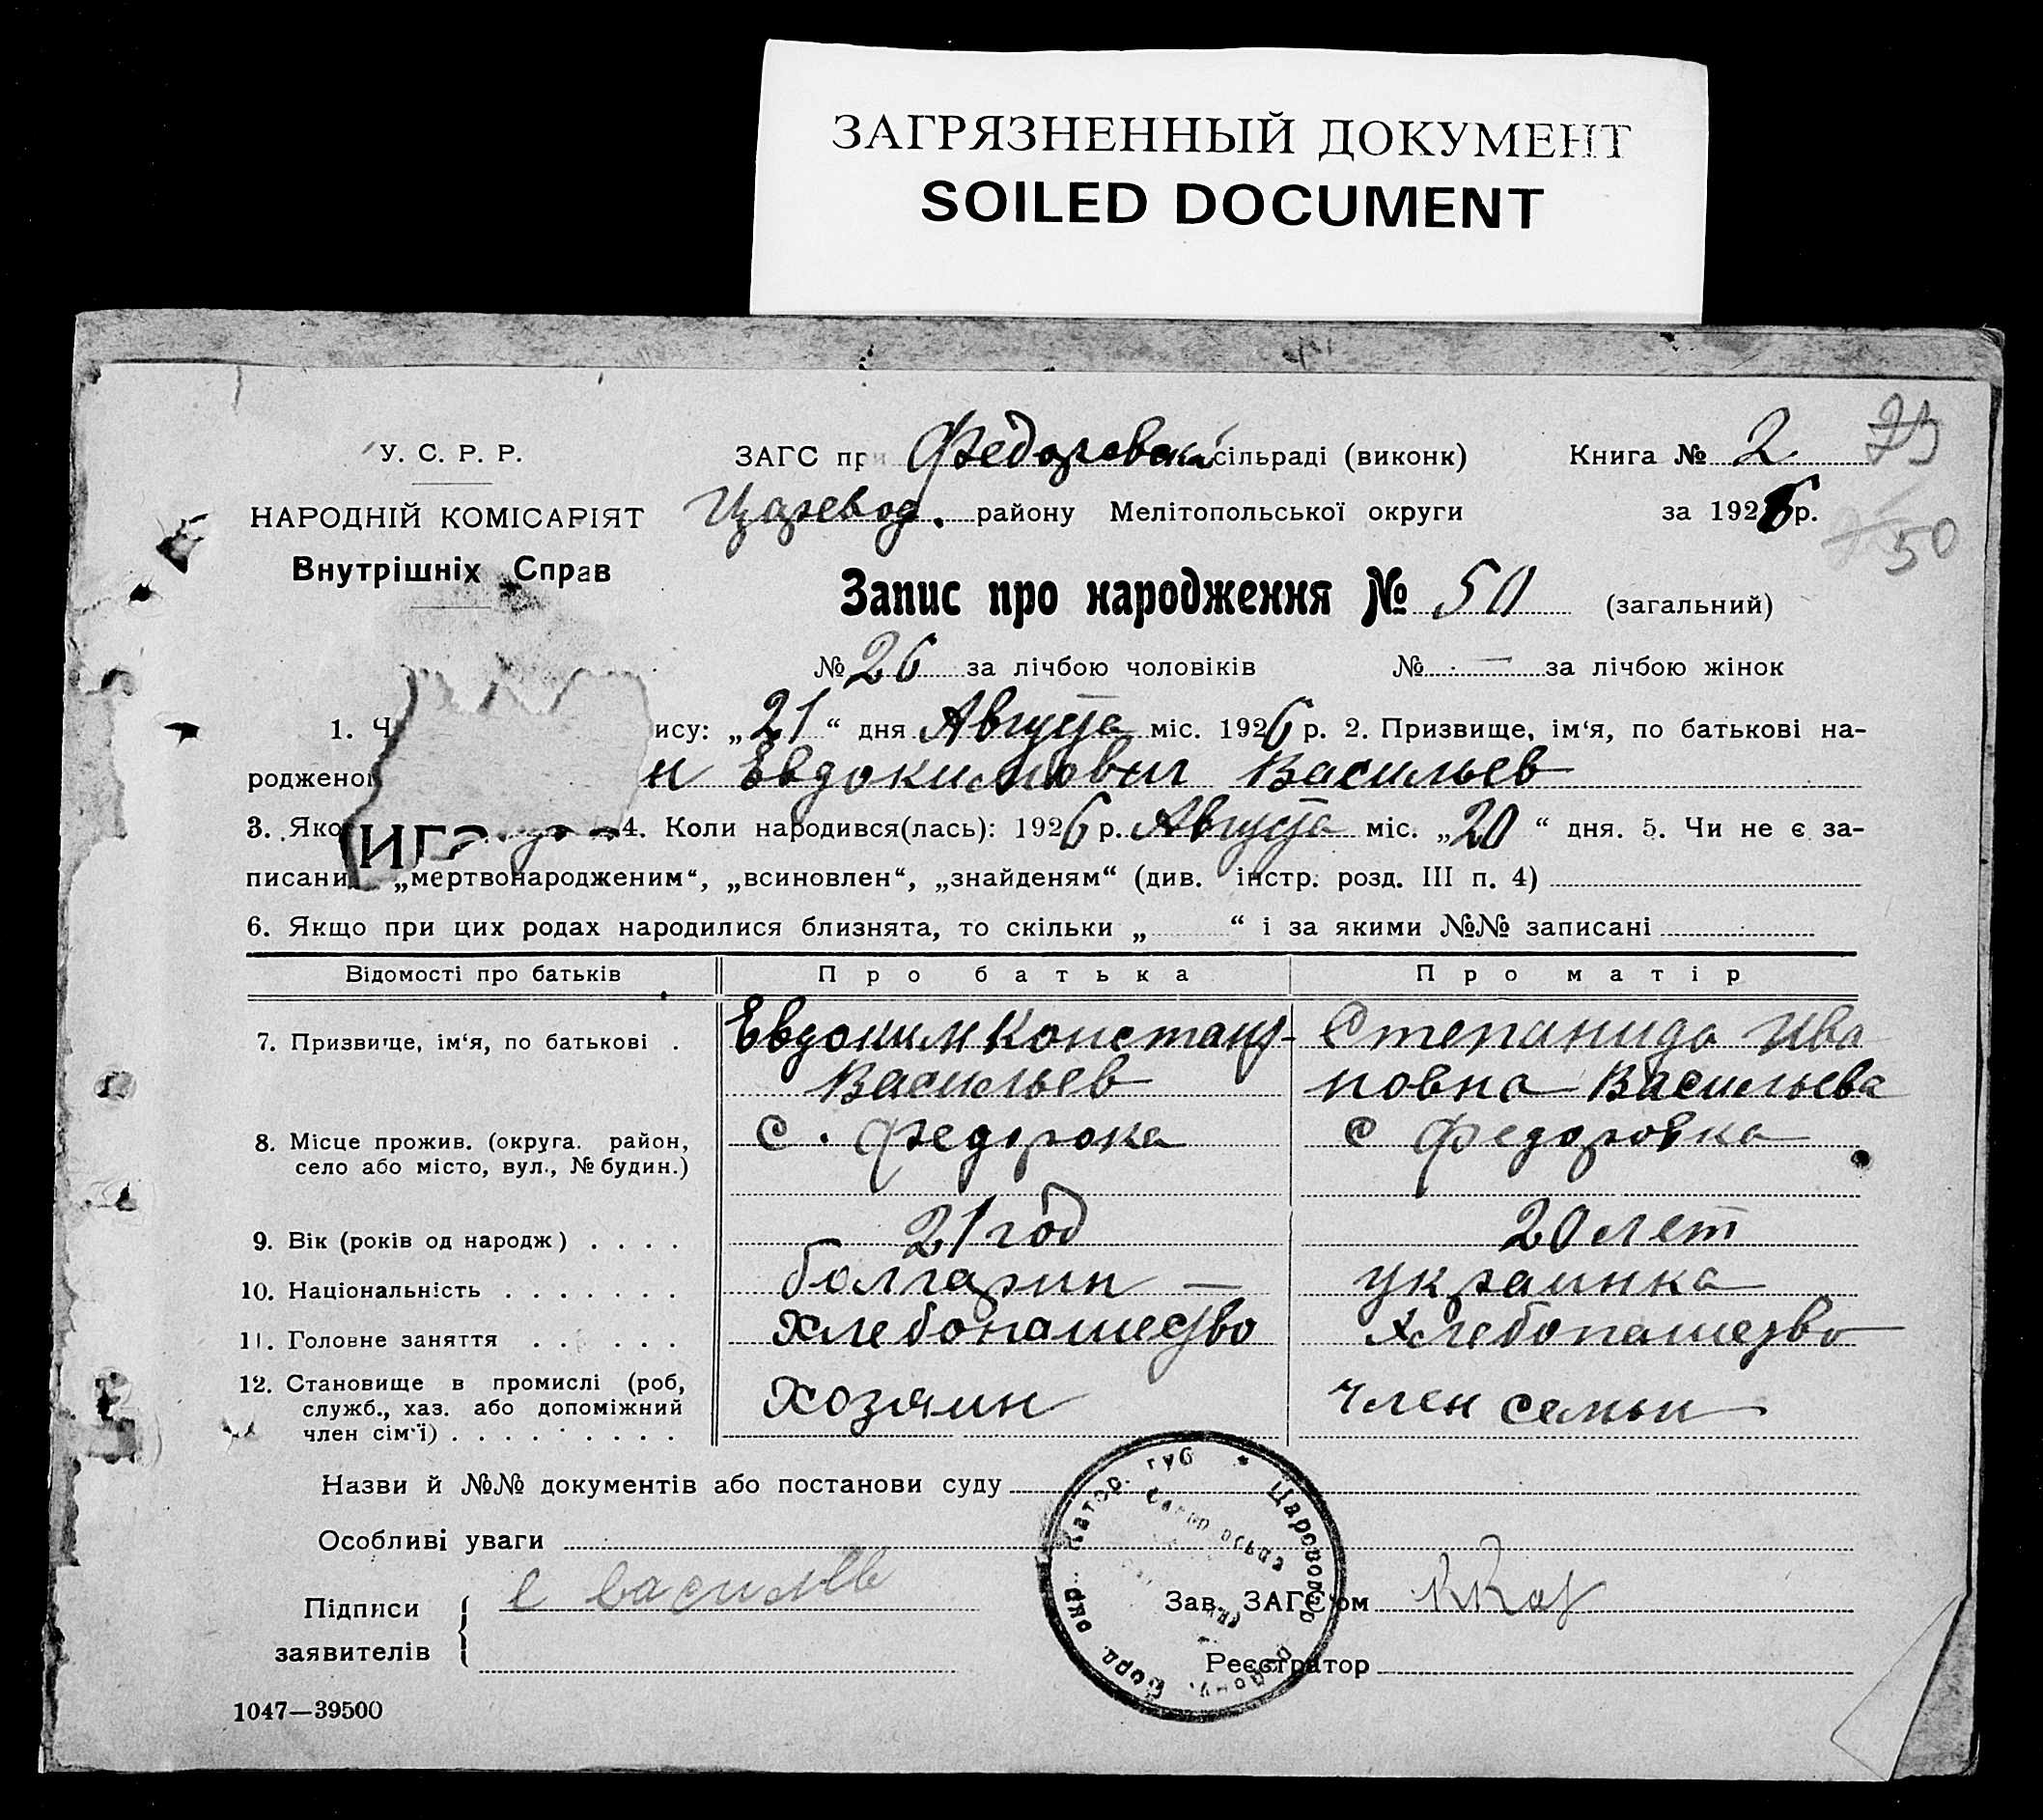 ЗАГРЯЗНЕННЫЙ ДОКУМЕНТ
SOILED DOCUMENT
У. С. Р. Р.
НАРОДНІЙ КОМІСАРІЯТ
Внутрішніх Справ
ЗАГС при Федоровск сільраді (виконк)
Царевод. району Мелітопольської округи
Книга № 2
за 1926 р.
50
Запис про народження № 50 (загальний)
№ 26 за лічбою чоловіків № — за лічбою жінок
1. Ч ису: „21“ дня Августа міс. 1926 р. 2. Призвище, ім‘я, по батькові на-
родженої н Евдокимович Васильев
3. Яко 4. Коли народився(лась): 1926 р. Августа міс. „20“ дня. 5. Чи не є за-
писаний „мертвонародженим“, „всиновлен“, „знайденям“ (див. інстр. розд. III п. 4)
6. Якщо при цих родах народилися близнята, то скільки „ “ і за якими №№ записані
Відомості про батьків Про батька Про матір
7. Призвище, ім‘я, по батькові . Евдоким Констант- Степанида Ива
Васильев новна Васильева
8. Місце прожив. (округа. район, с. Федорока с Федоровка
село або місто, вул., № будин.)
9. Вік (років од народж) . . . . 21 год 20 лет
10. Національність . . . . . . . болгарин — украинка
11. Головне заняття . . . . . . Хлебопашество Хлебопашество
12. Становище в промислі (роб, Хозяин член семьи
служб., хаз. або допоміжний
член сім'ї) . . . . . . . . .
Назви й №№ документів або постанови суду
Особливі уваги
Підписи
заявителів
е василев
Зав. ЗАГС'ом
Реєстратор
1047—39500